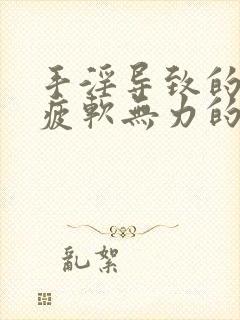 手淫导致的
疲軟無力的
亂絮